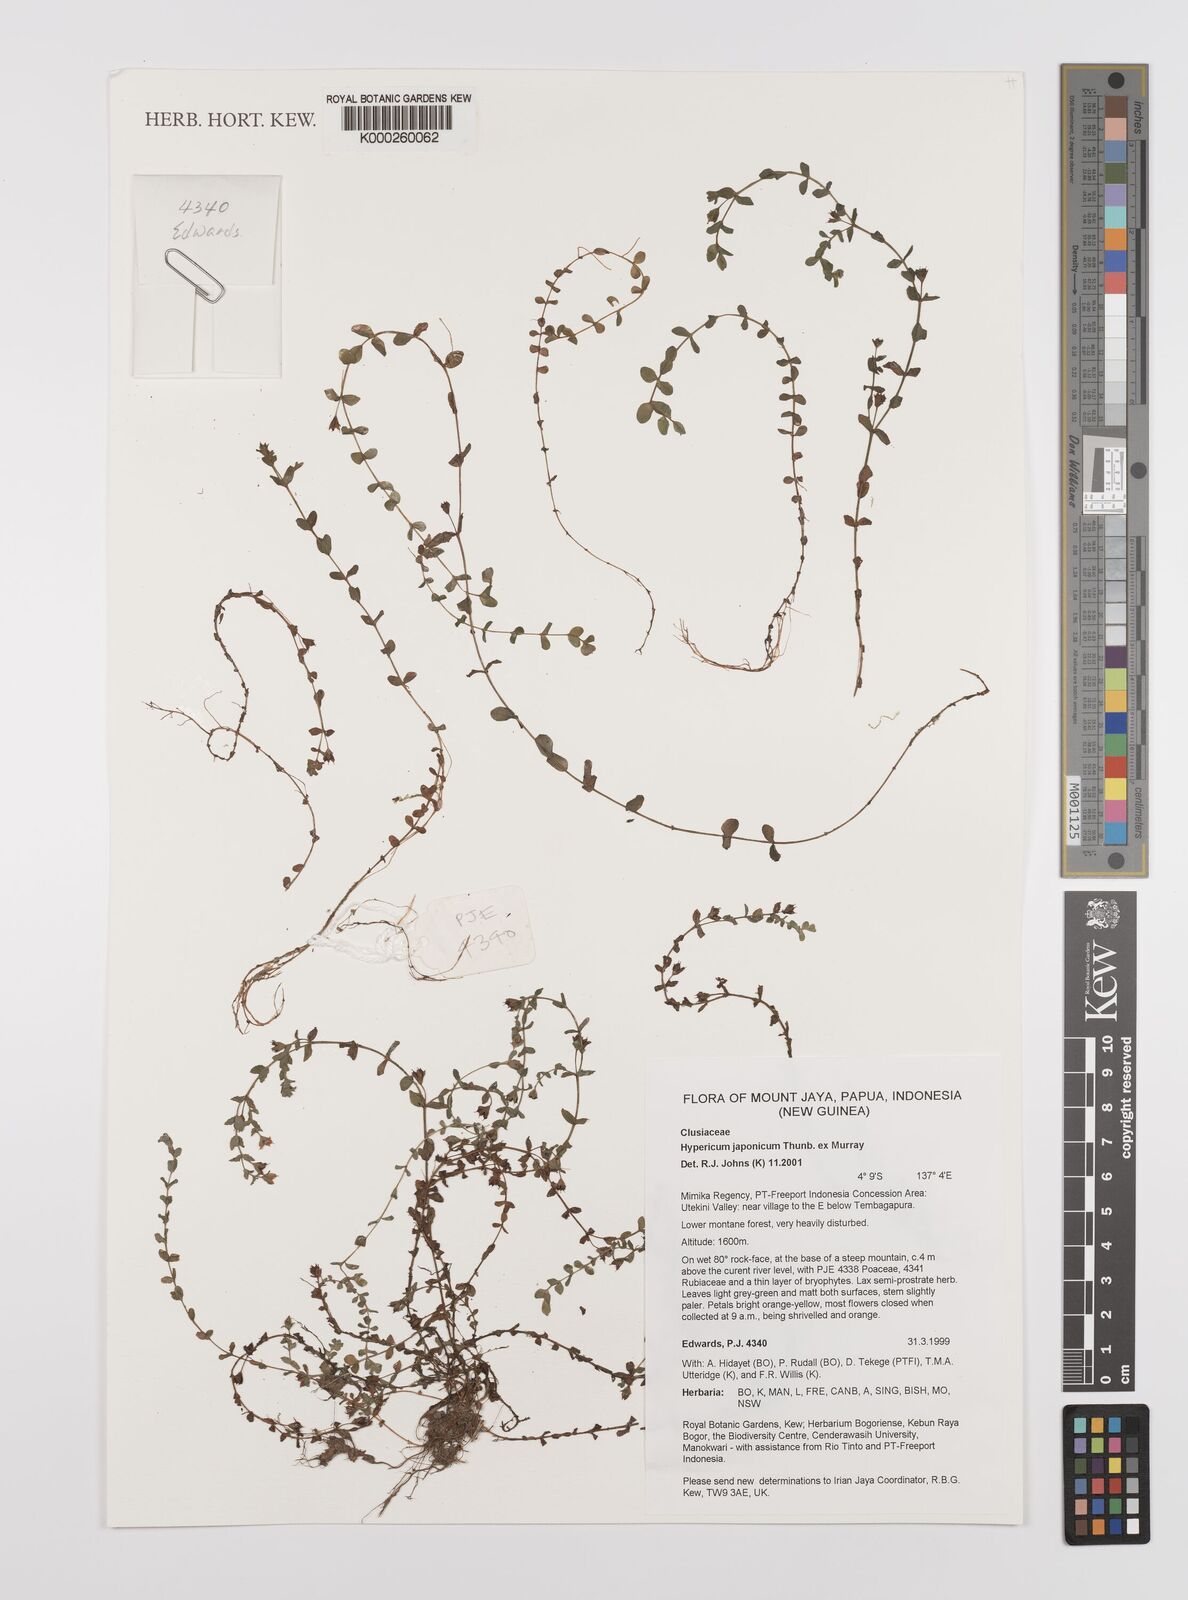 HERB. HORT. KEW.
ROYAL BOTANIC GARDENS KEW
K000260062
4340
Edwards
PJE
4340
FLORA OF MOUNT JAYA, PAPUA, INDONESIA
(NEW GUINEA)
Clusiaceae
Hypericum japonicum Thunb. ex Murray
Det. R.J. Johns (K) 11.2001
4° 9'S 137° 4'E
Mimika Regency, PT-Freeport Indonesia Concession Area:
Utekini Valley: near village to the E below Tembagapura.
Lower montane forest, very heavily disturbed.
Altitude: 1600m.
On wet 80° rock-face, at the base of a steep mountain, c.4 m
above the curent river level, with PJE 4338 Poaceae, 4341
Rubiaceae and a thin layer of bryophytes. Lax semi-prostrate herb.
Leaves light grey-green and matt both surfaces, stem slightly
paler. Petals bright orange-yellow, most flowers closed when
collected at 9 a.m., being shrivelled and orange.
Edwards, P.J. 4340 31.3.1999
With: A. Hidayet (BO), P. Rudall (BO), D. Tekege (PTFI), T.M.A.
Utteridge (K), and F.R. Willis (K).
Herbaria: BO, K, MAN, L, FRE, CANB, A, SING, BISH, MO,
NSW
Royal Botanic Gardens, Kew; Herbarium Bogoriense, Kebun Raya
Bogor, the Biodiversity Centre, Cenderawasih University,
Manokwari - with assistance from Rio Tinto and PT-Freeport
Indonesia.
Please send new determinations to Irian Jaya Coordinator, R.B.G.
Kew, TW9 3AE, UK.
inches
Density
Don Williams
M001125
centimeters
Royal Botanic Gardens
Kew
0 1 2 3 4 5 6 7 8 9 10
cm
copyright reserved